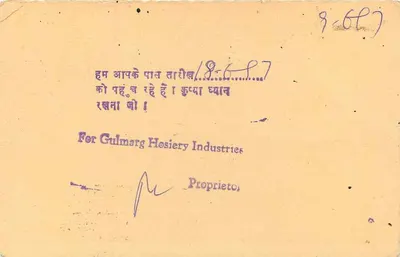 9-6-87
हम आपके पास तारीख 18-6-87
को पहुंच रहे हैं। कृप्या ध्यान
रखना जी।
For Gulmarg Hosiery Industries
Proprietor